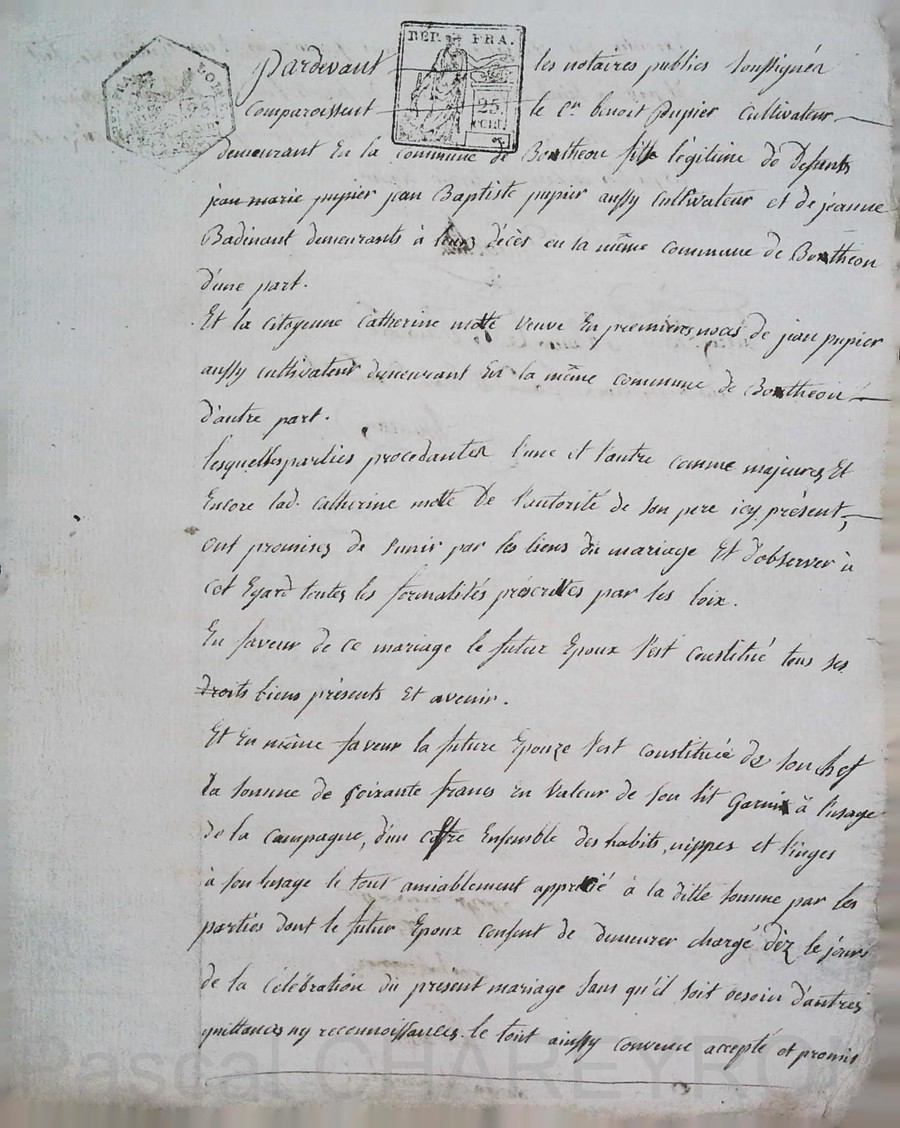 REP. FRA.
25.
CENT.
Pardevant les notaires publics soussignés
comparoissent le Cn benoit pupier cultivateur
demeurant En la commune de Bontheon fils légitime de défunts
jean marie pupier jean Baptiste pupier aussy cultivateur et de jeanne
Badinant demeurants à leurs décès en la même commune de Bontheon
d'une part.
Et la citoyenne catherine motte veuve En premieres noces de jean pupier
aussy cultivateur demeurant En la même commune de Bontheon
d'autre part.
lesquelles parties procedantes l'une et l'autre comme majeures Et
Encore lad. catherine motte De l'autorité de son pere icy présent,
ont promises de s'unir par les liens du mariage Et d'observer à
cet Egard toutes les formalités préscrittes par les loix.
En faveur de ce mariage le futur Epoux s'est constitué tous ses
Droits biens présents Et avenir.
Et En même faveur la future Epouze s'est constituée de son chef
la somme de soixante francs En valeur de son lit Garni à l'usage
de la campagne, d'un coffre Ensemble des habits, nippes et linges
à son usage le tout amiablement apprécié à la ditte somme par les
parties dont le futur Epoux consent de demeurer chargé dèz le jour
de la célébration du présent mariage sans qu'il soit besoin d'autres
quittances ny reconnoissances. le tout ainssy convenu accepté et promis
Pascal CHAREYRON